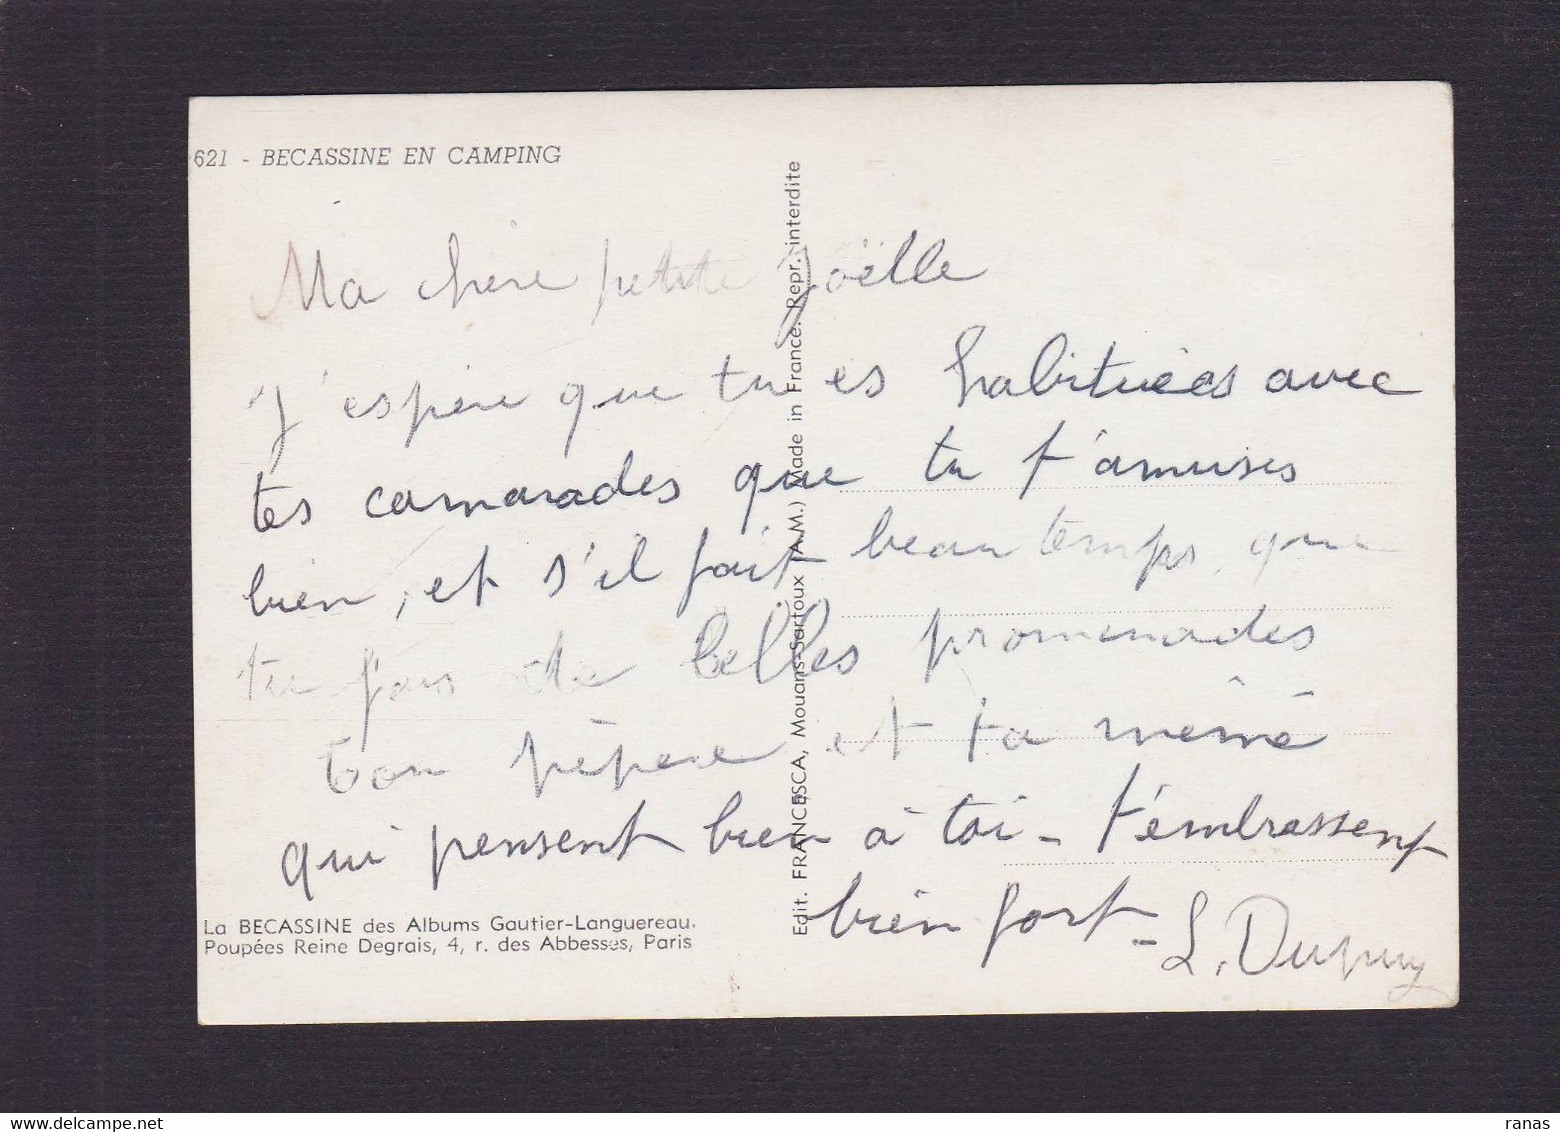 621 - BECASSINE EN CAMPING
Ma chère petite Joëlle
J'espère que tu es habituées avec
tes camarades que tu t'amuses
bien, et s'il fait beau temps, que
tu fais de belles promenades
ton pépère et ta mémé
qui pensent bien à toi - t'embrassent
bien fort -
L. Dupuy
La BECASSINE des Albums Gautier-Languereau.
Poupées Reine Degrais, 4, r. des Abbesses, Paris
Edit. FRANCESCA, Mouans-Sartoux (A.M.) Made in France. Repr. interdite
ranas